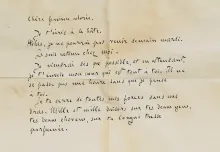 Chère femme adorée,
Je t'écris à la hâte.
Hélas, je ne pourrai pas venir demain mardi.
Je suis retenu chez moi.
Je viendrai dès que possible, et en attendant
je t'envoie mon cœur qui est tout à toi. Il ne
se passe pas une heure sans que je pense
à toi.
Je te serre de toutes mes forces dans mes
bras. Mille et mille baisers sur tes beaux yeux,
tes beaux cheveux, sur ta longue tresse
parfumée.